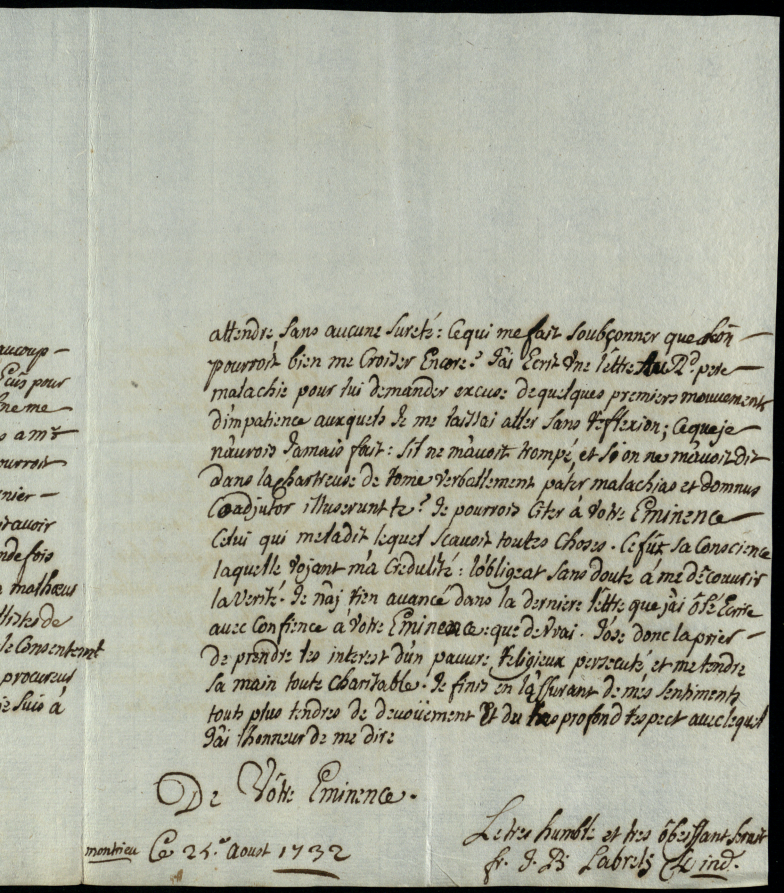 aucoup
Ecus pour
me
a mr
pourroit
nier
avoir
fois
mathœus
de
le Consentemt
procureur
je suis à
attendre sans aucune sureté : Cequi me fait soubçonner que lon
pourroit bien me Croiser Encore. J'ai Ecrit vne lettre Au Rd pere
malachie pour lui demander excuse de quelques premiers mouuements
d'impatience auxquels Je me laissai aller sans reflexion ; Ceque je
n'aurois Jamais fait : s'il ne m'auoit trompé, et si on ne m'auoit dit
dans la chartreuse de rome verballement pater malachias et domnus
Coadjutor illuserunt te. Je pourrois Citer à Votre Eminence
Celui qui me la dit lequel scauoit toutes choses. Ce fut sa Conscience
laquelle vojant ma Credulité : l'obligeat sans doute à me découurir
la verité. Je n'aj rien auancé dans la derniere lettre que j'ai ôsé Ecrire
avec Confience à Vôtre Eminence : que de vrai. J'ose donc la prier
de prendre les interest d'un pauure religieux persecuté, et me tendre
sa main toute charitable. Je finis en l'assurant de mes sentiments
touts plus tendres de deuoüement Et du tres profond respect auec lequel
J'ai l'honneur de me dire
De Vôtre Eminence.
Le tres humble et tres ôbeissant seruit
montrieu Ce 25. Aoust 1732
fr. J. B. Labrets ind.